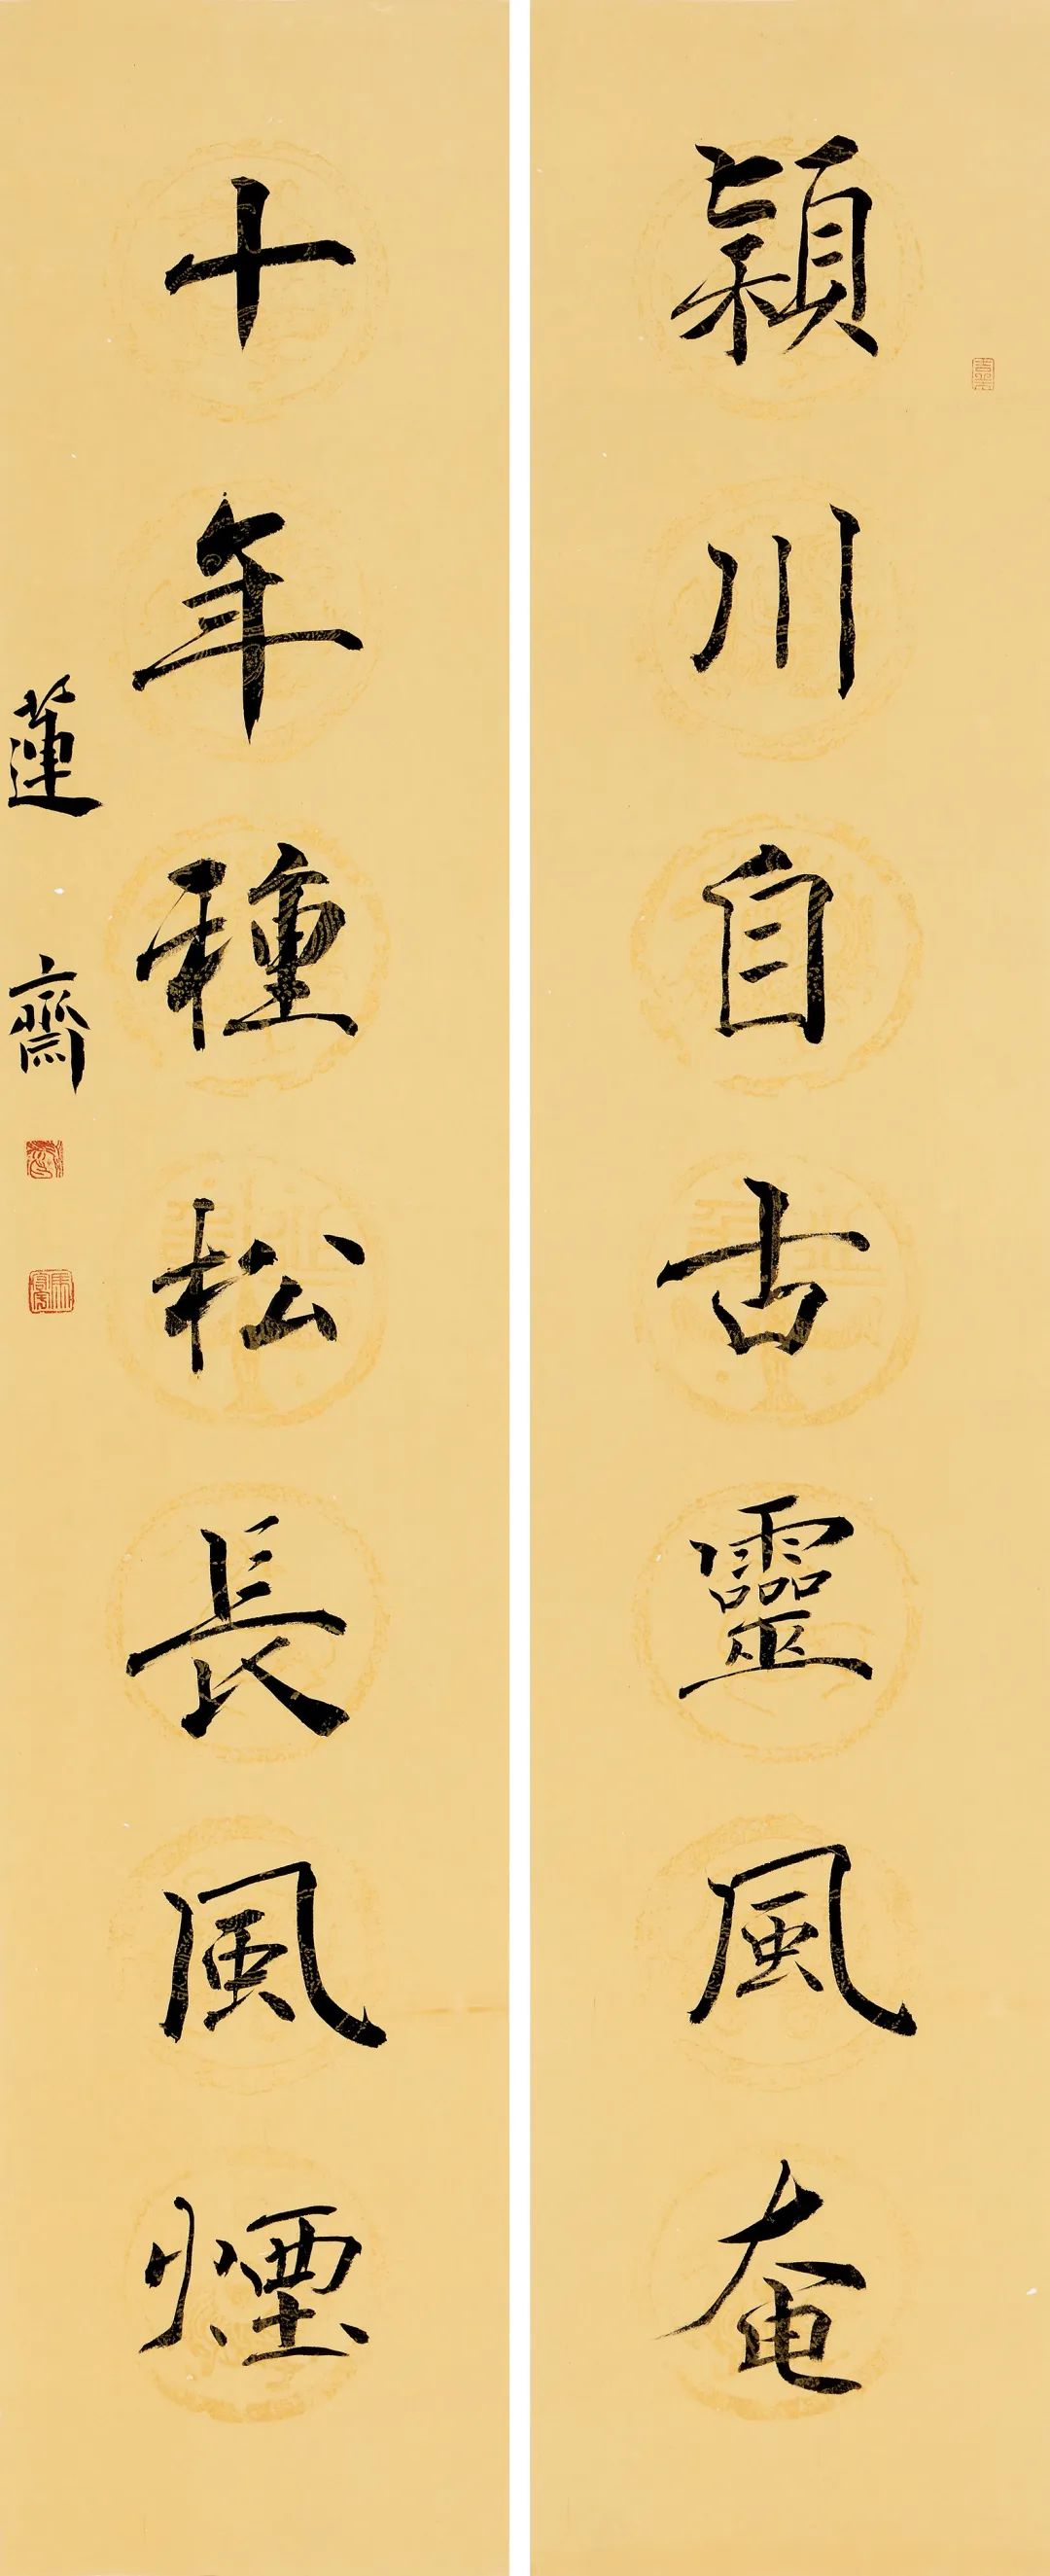 潁川自古靈風奄
十年種松長風煙
蓮齋